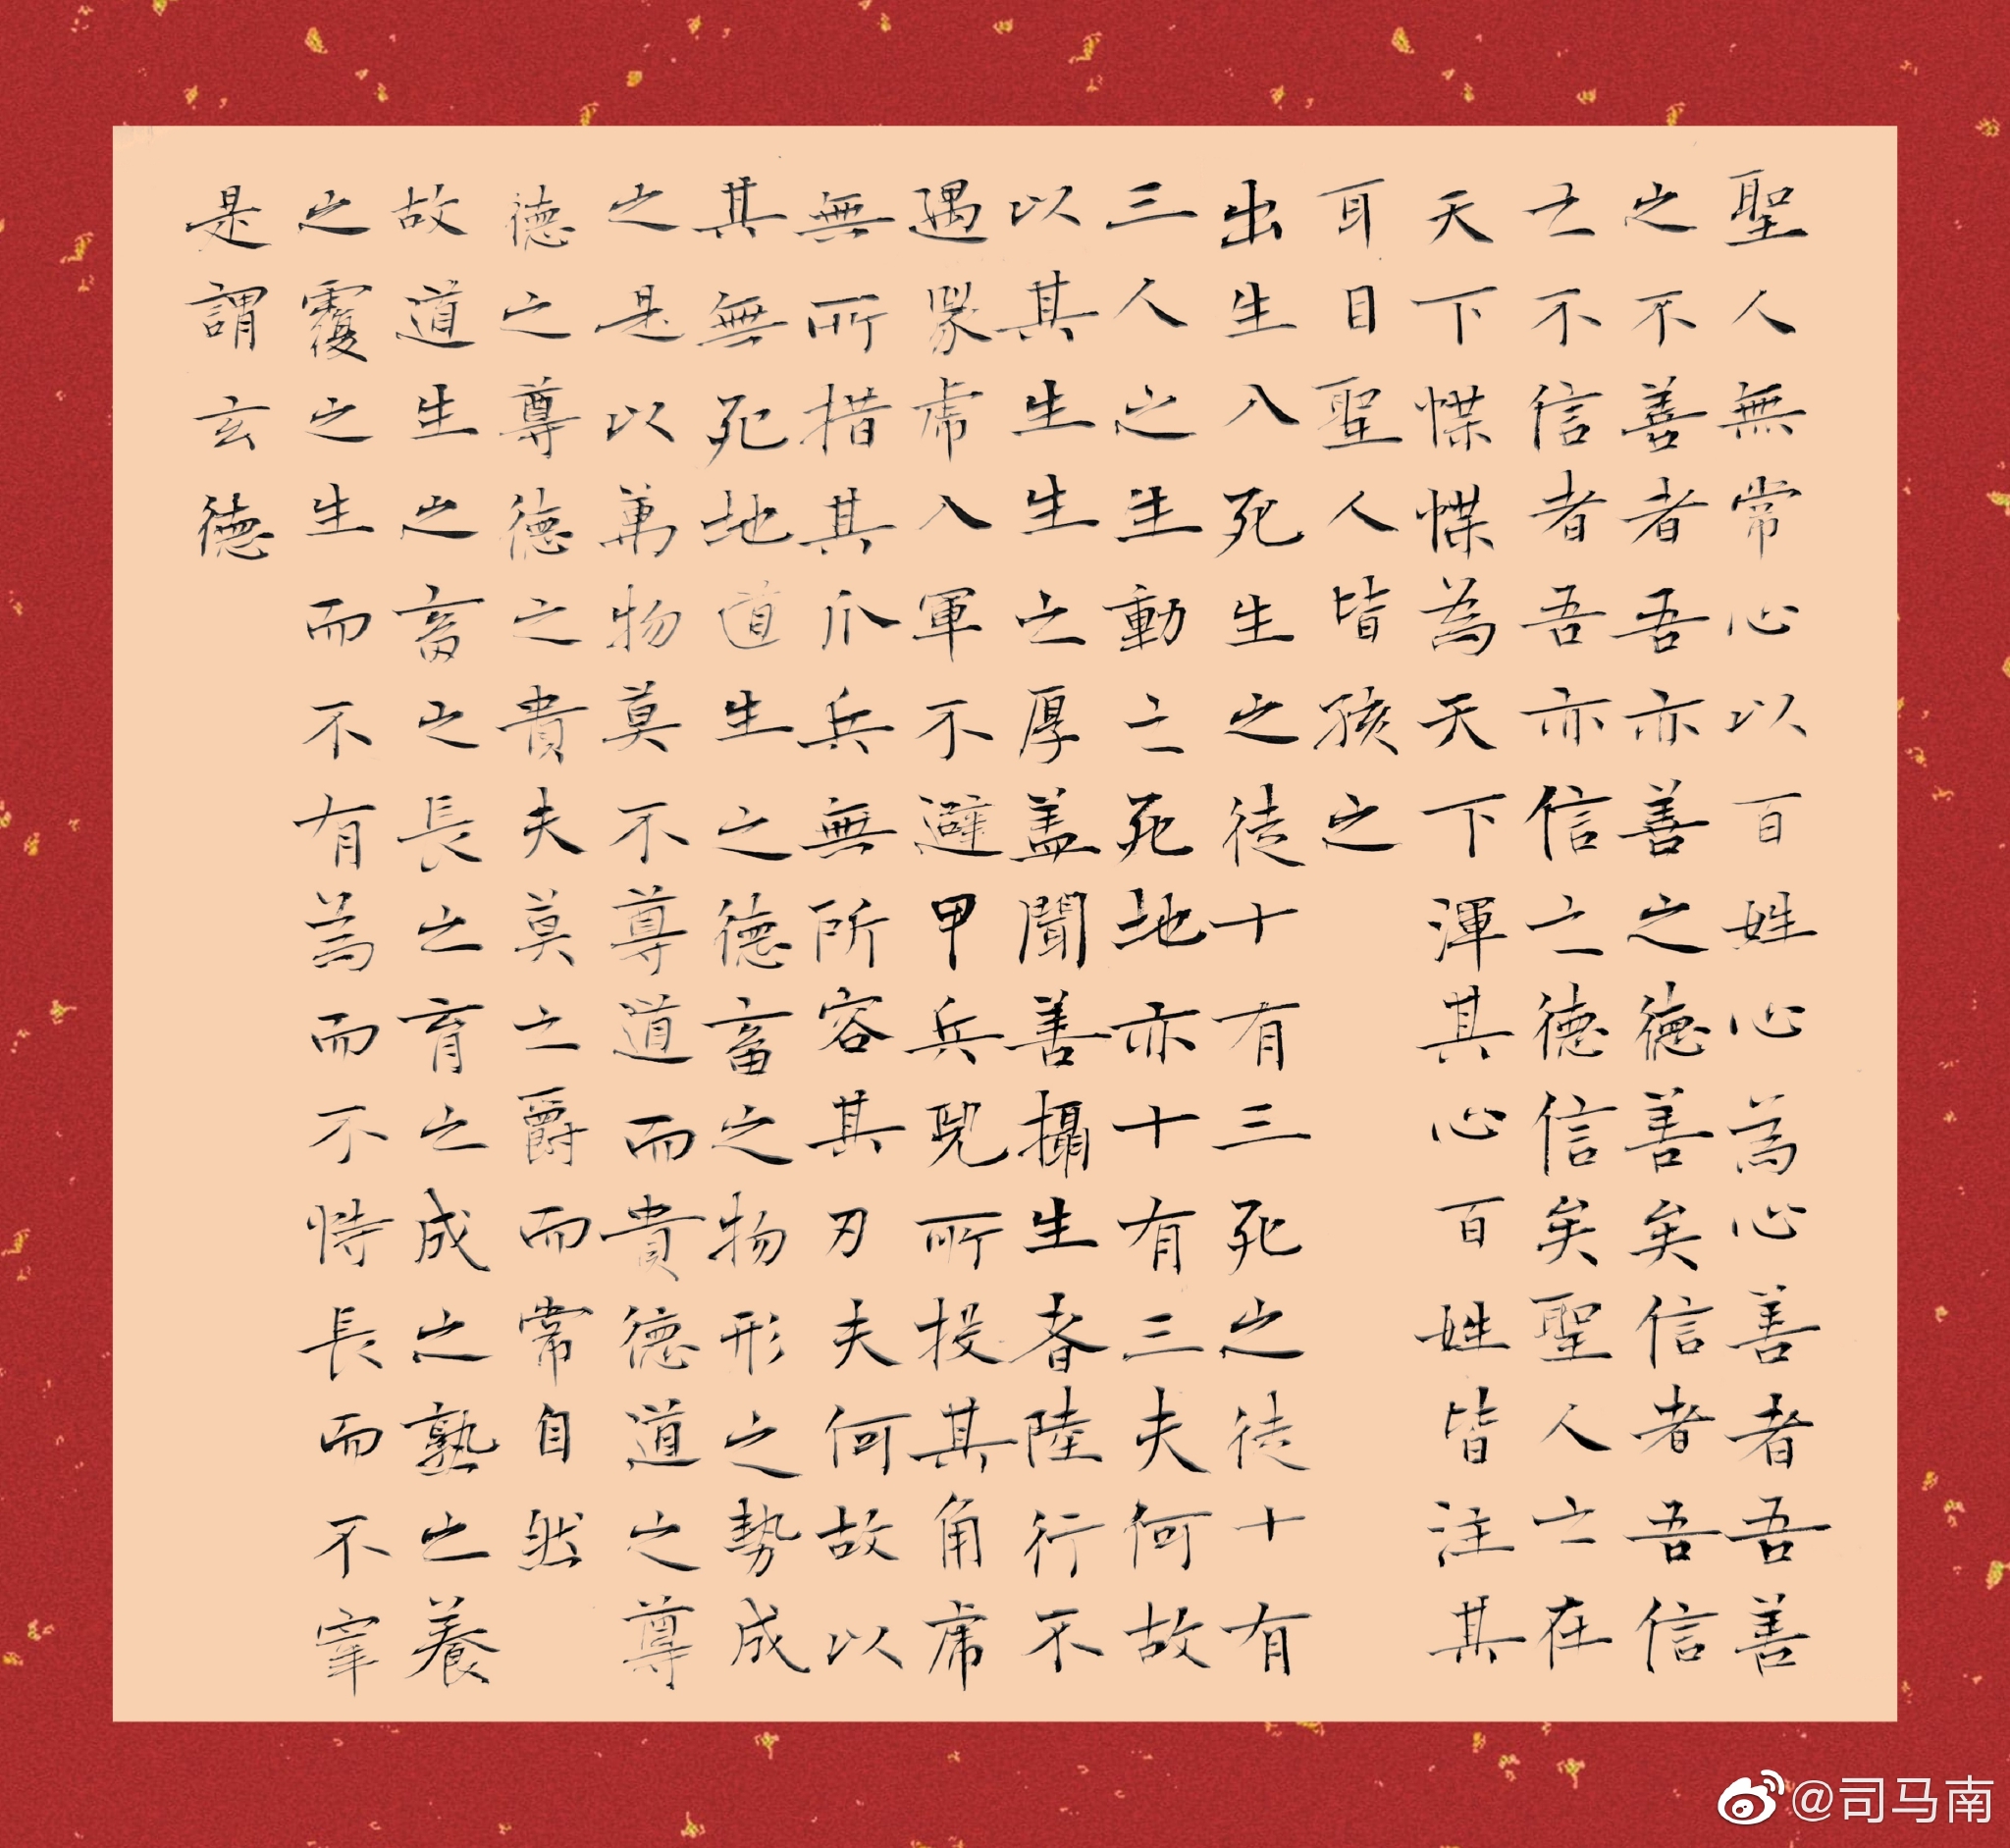 聖人無常心以百姓心為心善者吾善
之不善者吾亦善之德善矣信者吾信
之不信者吾亦信之德信矣聖人之在
天下惵惵為天下渾其心百姓皆注其
耳目聖人皆孩之
出生入死生之徒十有三死之徒十有
三人之生動之死地亦十有三夫何故
以其生生之厚盖聞善攝生者陸行不
遇兕虎入軍不避甲兵兕所投其角虎
無所措其爪兵無所容其刃夫何故以
其無死地道生之德畜之物形之勢成
之是以萬物莫不尊道而貴德道之尊
德之尊德之貴夫莫之爵而常自然
故道生之畜之長之育之成之熟之養
之覆之生而不有為而不恃長而不宰
是謂玄德
@司马南